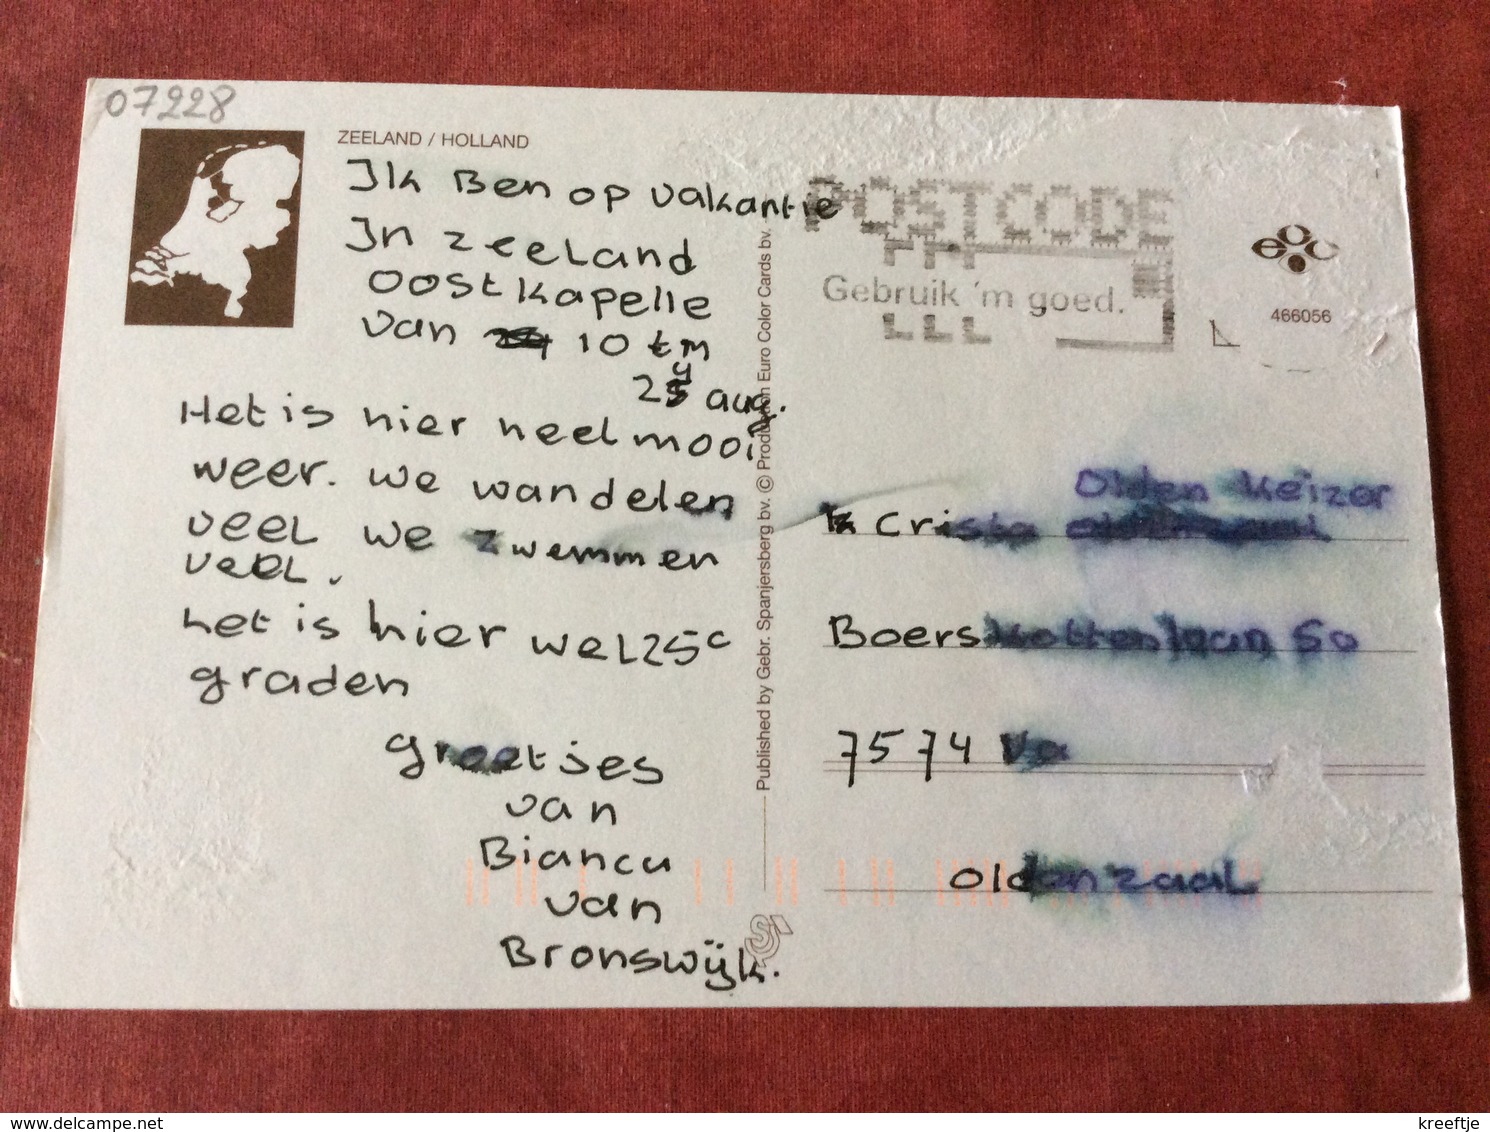 07228
ZEELAND / HOLLAND
Ik Ben op vakantie
In zeeland
oostkapelle
van 10 tm
24 aug.
Het is hier heel mooi
weer. we wandelen
veel we zwemmen
veel.
het is hier wel 25 c
graden
greetjes
van
Bianca
van
Bronswijk.
Published by Gebr. Spanjersberg bv. © Production Euro Color Cards bv.
POSTCODE
Gebruik 'm goed.
466056
Olden Keizer
Crista
Boerskottenlaan 50
7574 Va
oldenzaal
delcampe.net
kreeftje